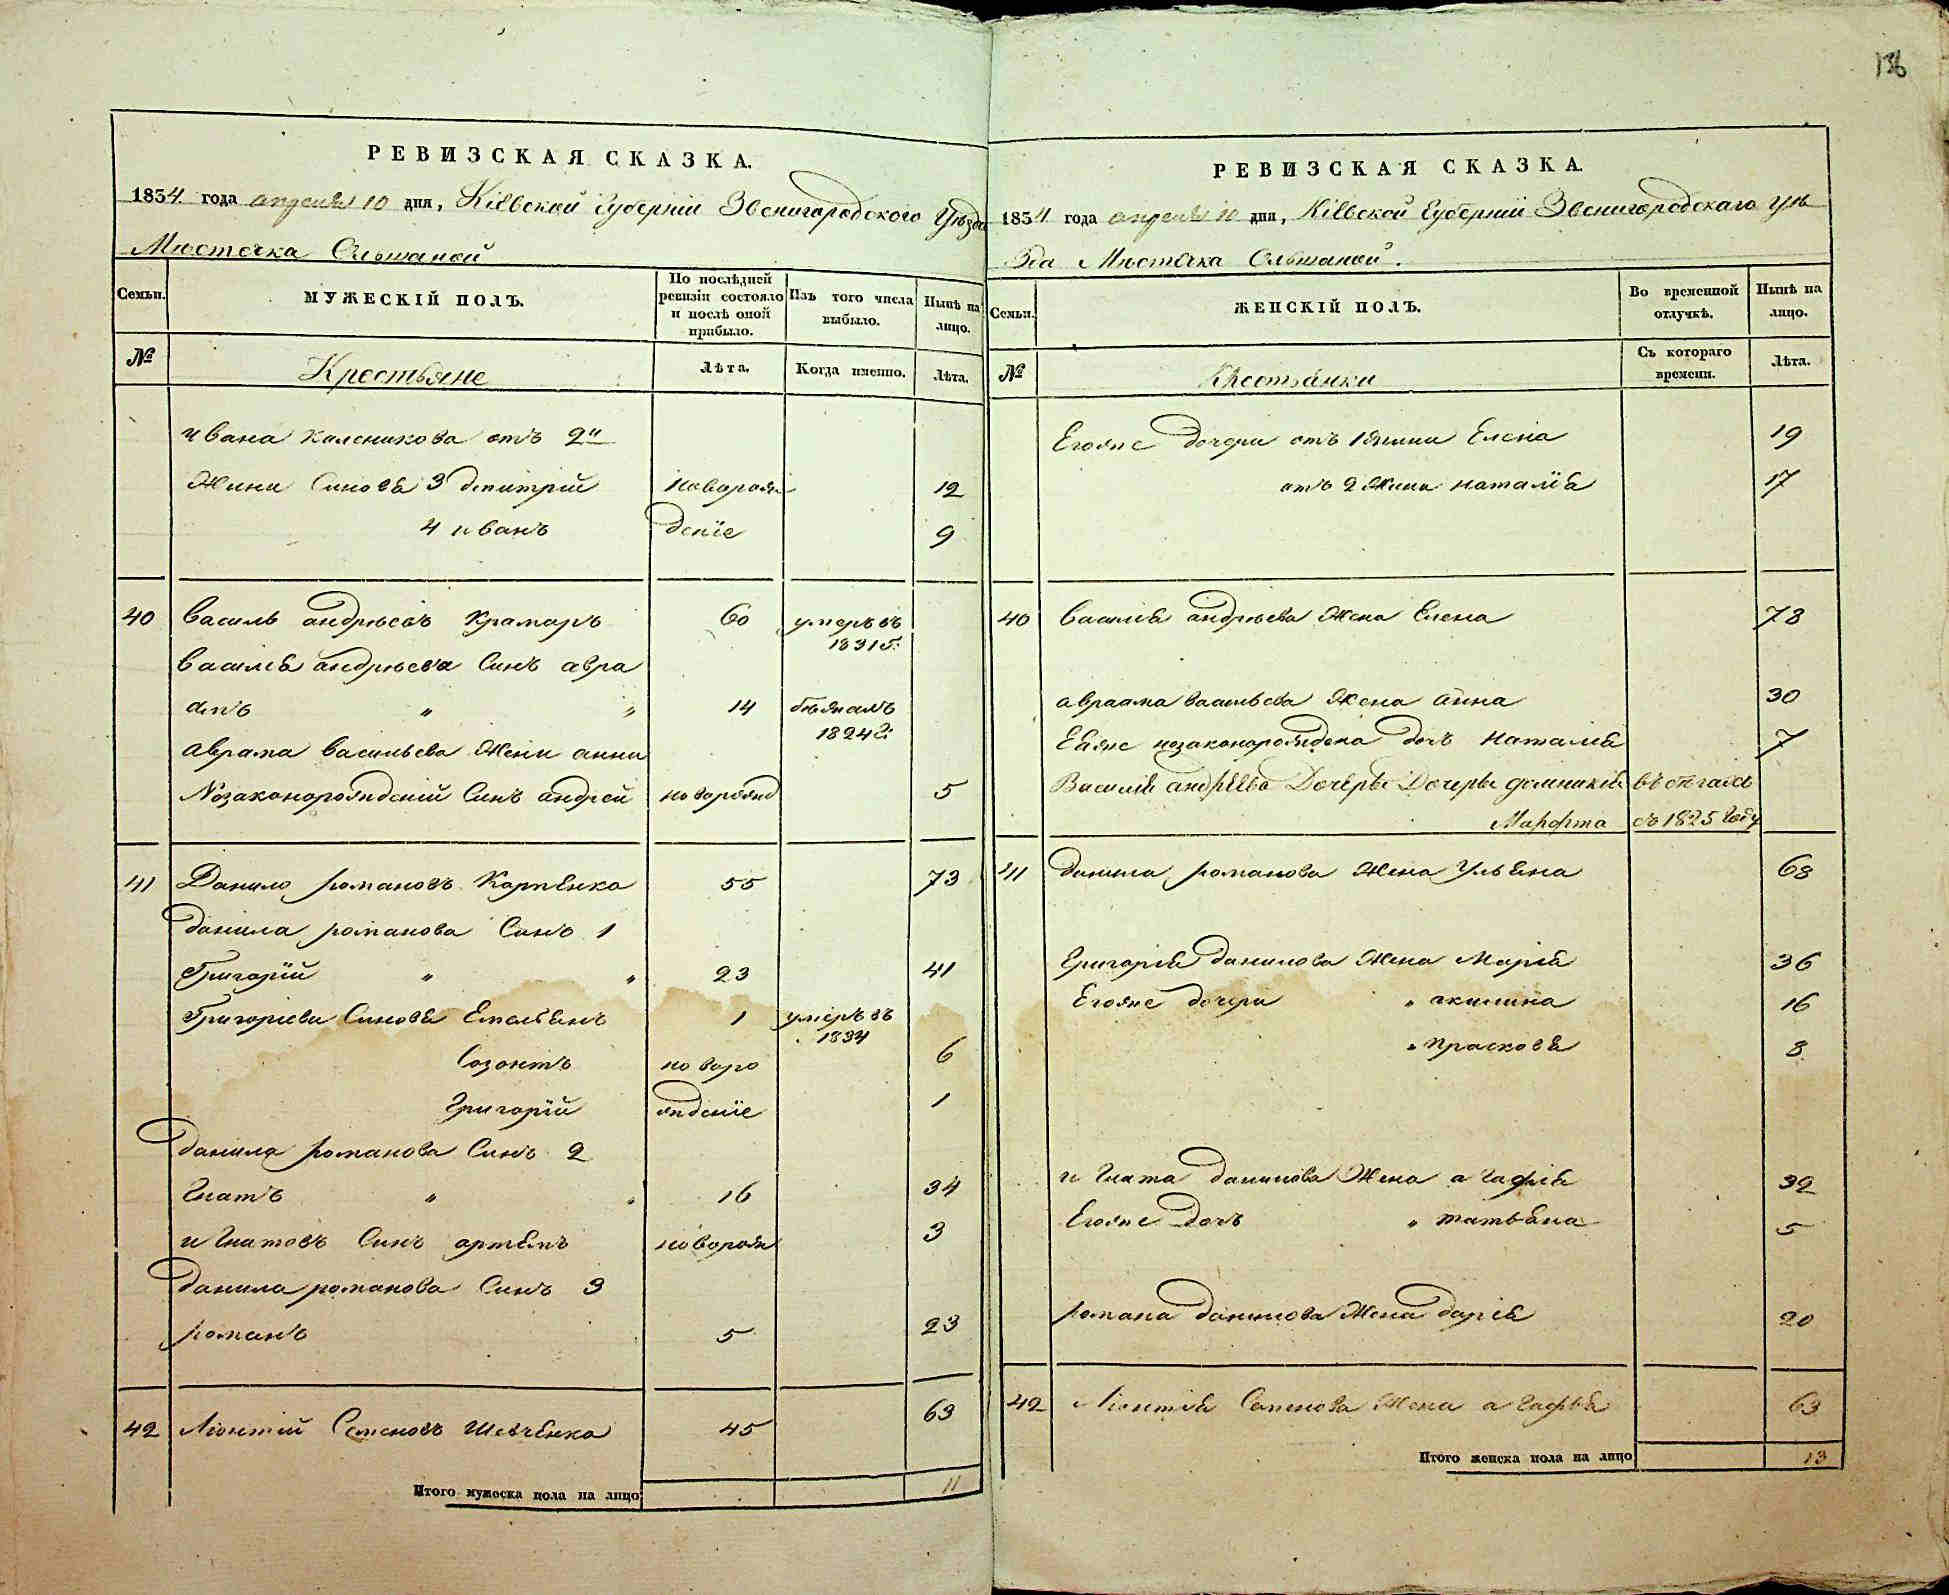 136
РЕВИЗСКАЯ СКАЗКА.
1834 года апреля 10 дня, Кіевской Губерніи Звенигородского Уѣзда
Мѣстечка Ольшаной
Семьи.
МУЖЕСКІЙ ПОЛЪ.
По послѣдней ревизіи состояло и послѣ оной прибыло.
Изъ того числа выбыло.
Нынѣ на лицо.
№
Крестьяне
Лѣта.
Когда именно.
Лѣта.
ивана каленикова отъ 2й
Жени Синовя 3 дмитрій новорож 12
4 иванъ деніе 9
40 василь андрѣевъ Крамаръ 60 умеръ въ 1831 г:
василя андрѣева Синъ авра
амъ " " 14 бѣжалъ 1824 г:
аврама васильева Жени анни
Незаконорожденій Синъ андрей новорожд 5
41 Данило романовъ Карпенко 55 73
данила романова Синъ 1
Григорій " " 23 41
Григоріеви Синовя Емельянъ 1 умеръ въ 1834
Созонтъ новоро 6
Григорій жденіе 1
данила романова Синъ 2
Гнатъ " " 16 34
игнатовъ Синъ артемъ новорож 3
данила романова Синъ 3
романъ 5 23
42 Ліонтій Семеновъ Шевченко 45 63
Итого мужеска пола на лицо 11
РЕВИЗСКАЯ СКАЗКА.
1834 года апреля 10 дня, Кіевской Губерніи Звенигородскаго уѣ
зда Мѣстечка Ольшаной.
Семьи.
ЖЕНСКІЙ ПОЛЪ.
Во временной отлучкѣ.
Нынѣ на лицо.
№
Крестьянки
Съ котораго времени.
Лѣта.
Егожъ дочери отъ 1 жини Елена 19
отъ 2 Жини Наталія 17
40 василя андрѣева Жена Елена 78
авраама васильева Жена анна 30
Еяже незаконорождена дочъ Наталія 7
Василія андрѣева Дочеры Дочеры домникія въ бѣгахъ
Марфта съ 1825 году
41 данила романова Жена Ульяна 68
Григорія данилова Жена Марія 36
Егоже дочери " акилина 16
" Прасковя 8
игната данилова Жена агафія 32
Егоже дочъ " татьяна 5
романа данилова Жена дарія 20
42 Ліонтія Семенова Жена агафья 63
Итого женска пола на лицо 13